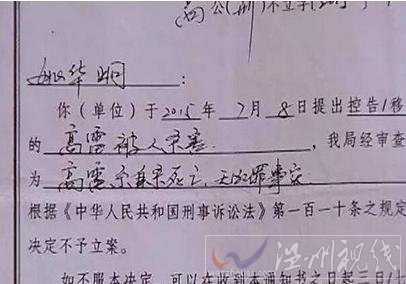 公(刑)不立字[201
华明：
你（单位）于2015年7月8日提出控告/移
的高雷被人杀害，我局经审查
为高雷系自杀死亡，无犯罪事实
根据《中华人民共和国刑事诉讼法》第一百一十条之规定
决定不予立案。
如不服本决定，可以在收到本通知书之日起三日/七
温州视线